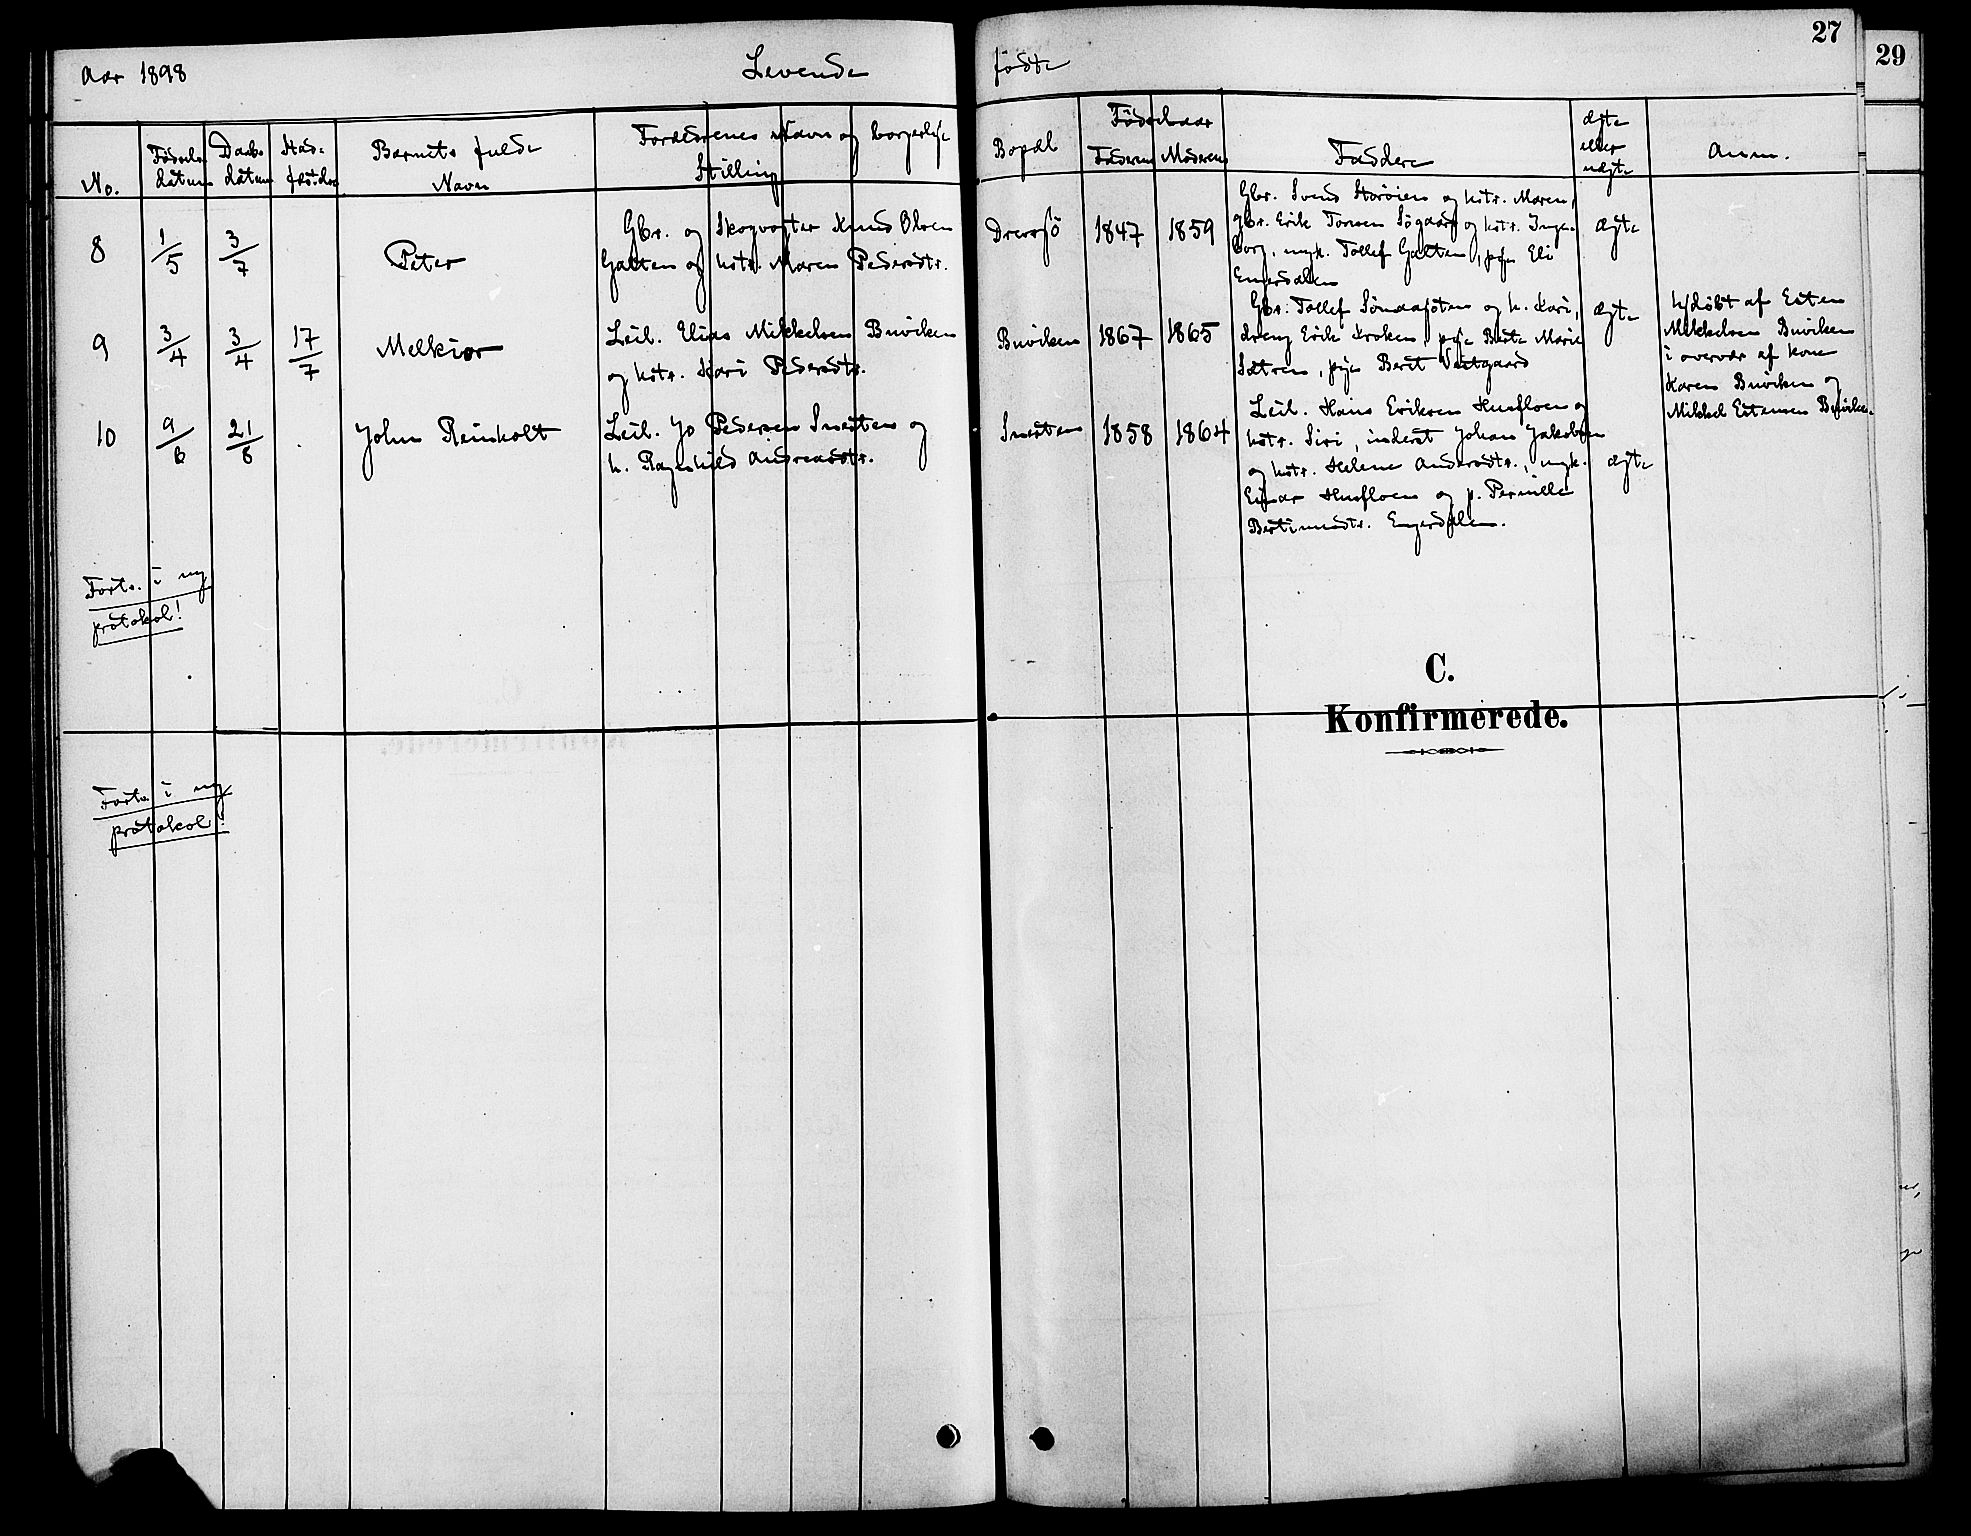 27
29
Aar 1898 Levende fødte
No.
Fødsels-
datum
Daabs-
datum
Stad-
fæst. dag
Barnets fulde
Navn
Forældrenes Navn og borgerlige
Stilling
Bopæl
Fødselsaar
Faderens Moderens
Faddere
Ægte
eller
uægte
Anm.
8 1/5 3/7 Peter
Gbr. og Skogvogter Knud Olsen
Galten og hstr. Maren Pedersdtr.
Drevsjö 1847 1859
Gbr. Svend Storöien og hstr. Maren,
gbr. Erik Tomsen Sögaard og hstr. Inge-
borg, ungk. Tollef Galten, pige Eli
Engerdalen
ægte
9 3/4 3/4 17/7 Melkior
Leil. Elias Mikkelsen Buviken
og hstr. Kari Pedersdtr.
Buviken 1867 1865
Gbr. Tollef Sömaafoten og h. Kari,
dreng Erik Kroken, pige Berte Marie
Sætren, pige Beret Vestgaard
ægte
hjdöbt af Esten
Mikkelsen Buviken
i overvær af kone
Karen Buviken og
Mikkel Estensen Buviken.
10 9/6 21/8 John Reinholt
Leil. Jo Pedersen Snerten og
h. Ragnhild Andreasdtr.
Snerten 1858 1864
Leil. Hans Eriksen Husfloen og
hstr. Siri, inderst Johan Jakobsen
og hstr. Helene Andersdtr., ungk.
Einar Husfloen og p. Pernille
Bertinusdtr. Engerdalen.
ægte
Forts. i ny
protokol!
C.
Konfirmerede.
Forts. i ny
protokol!